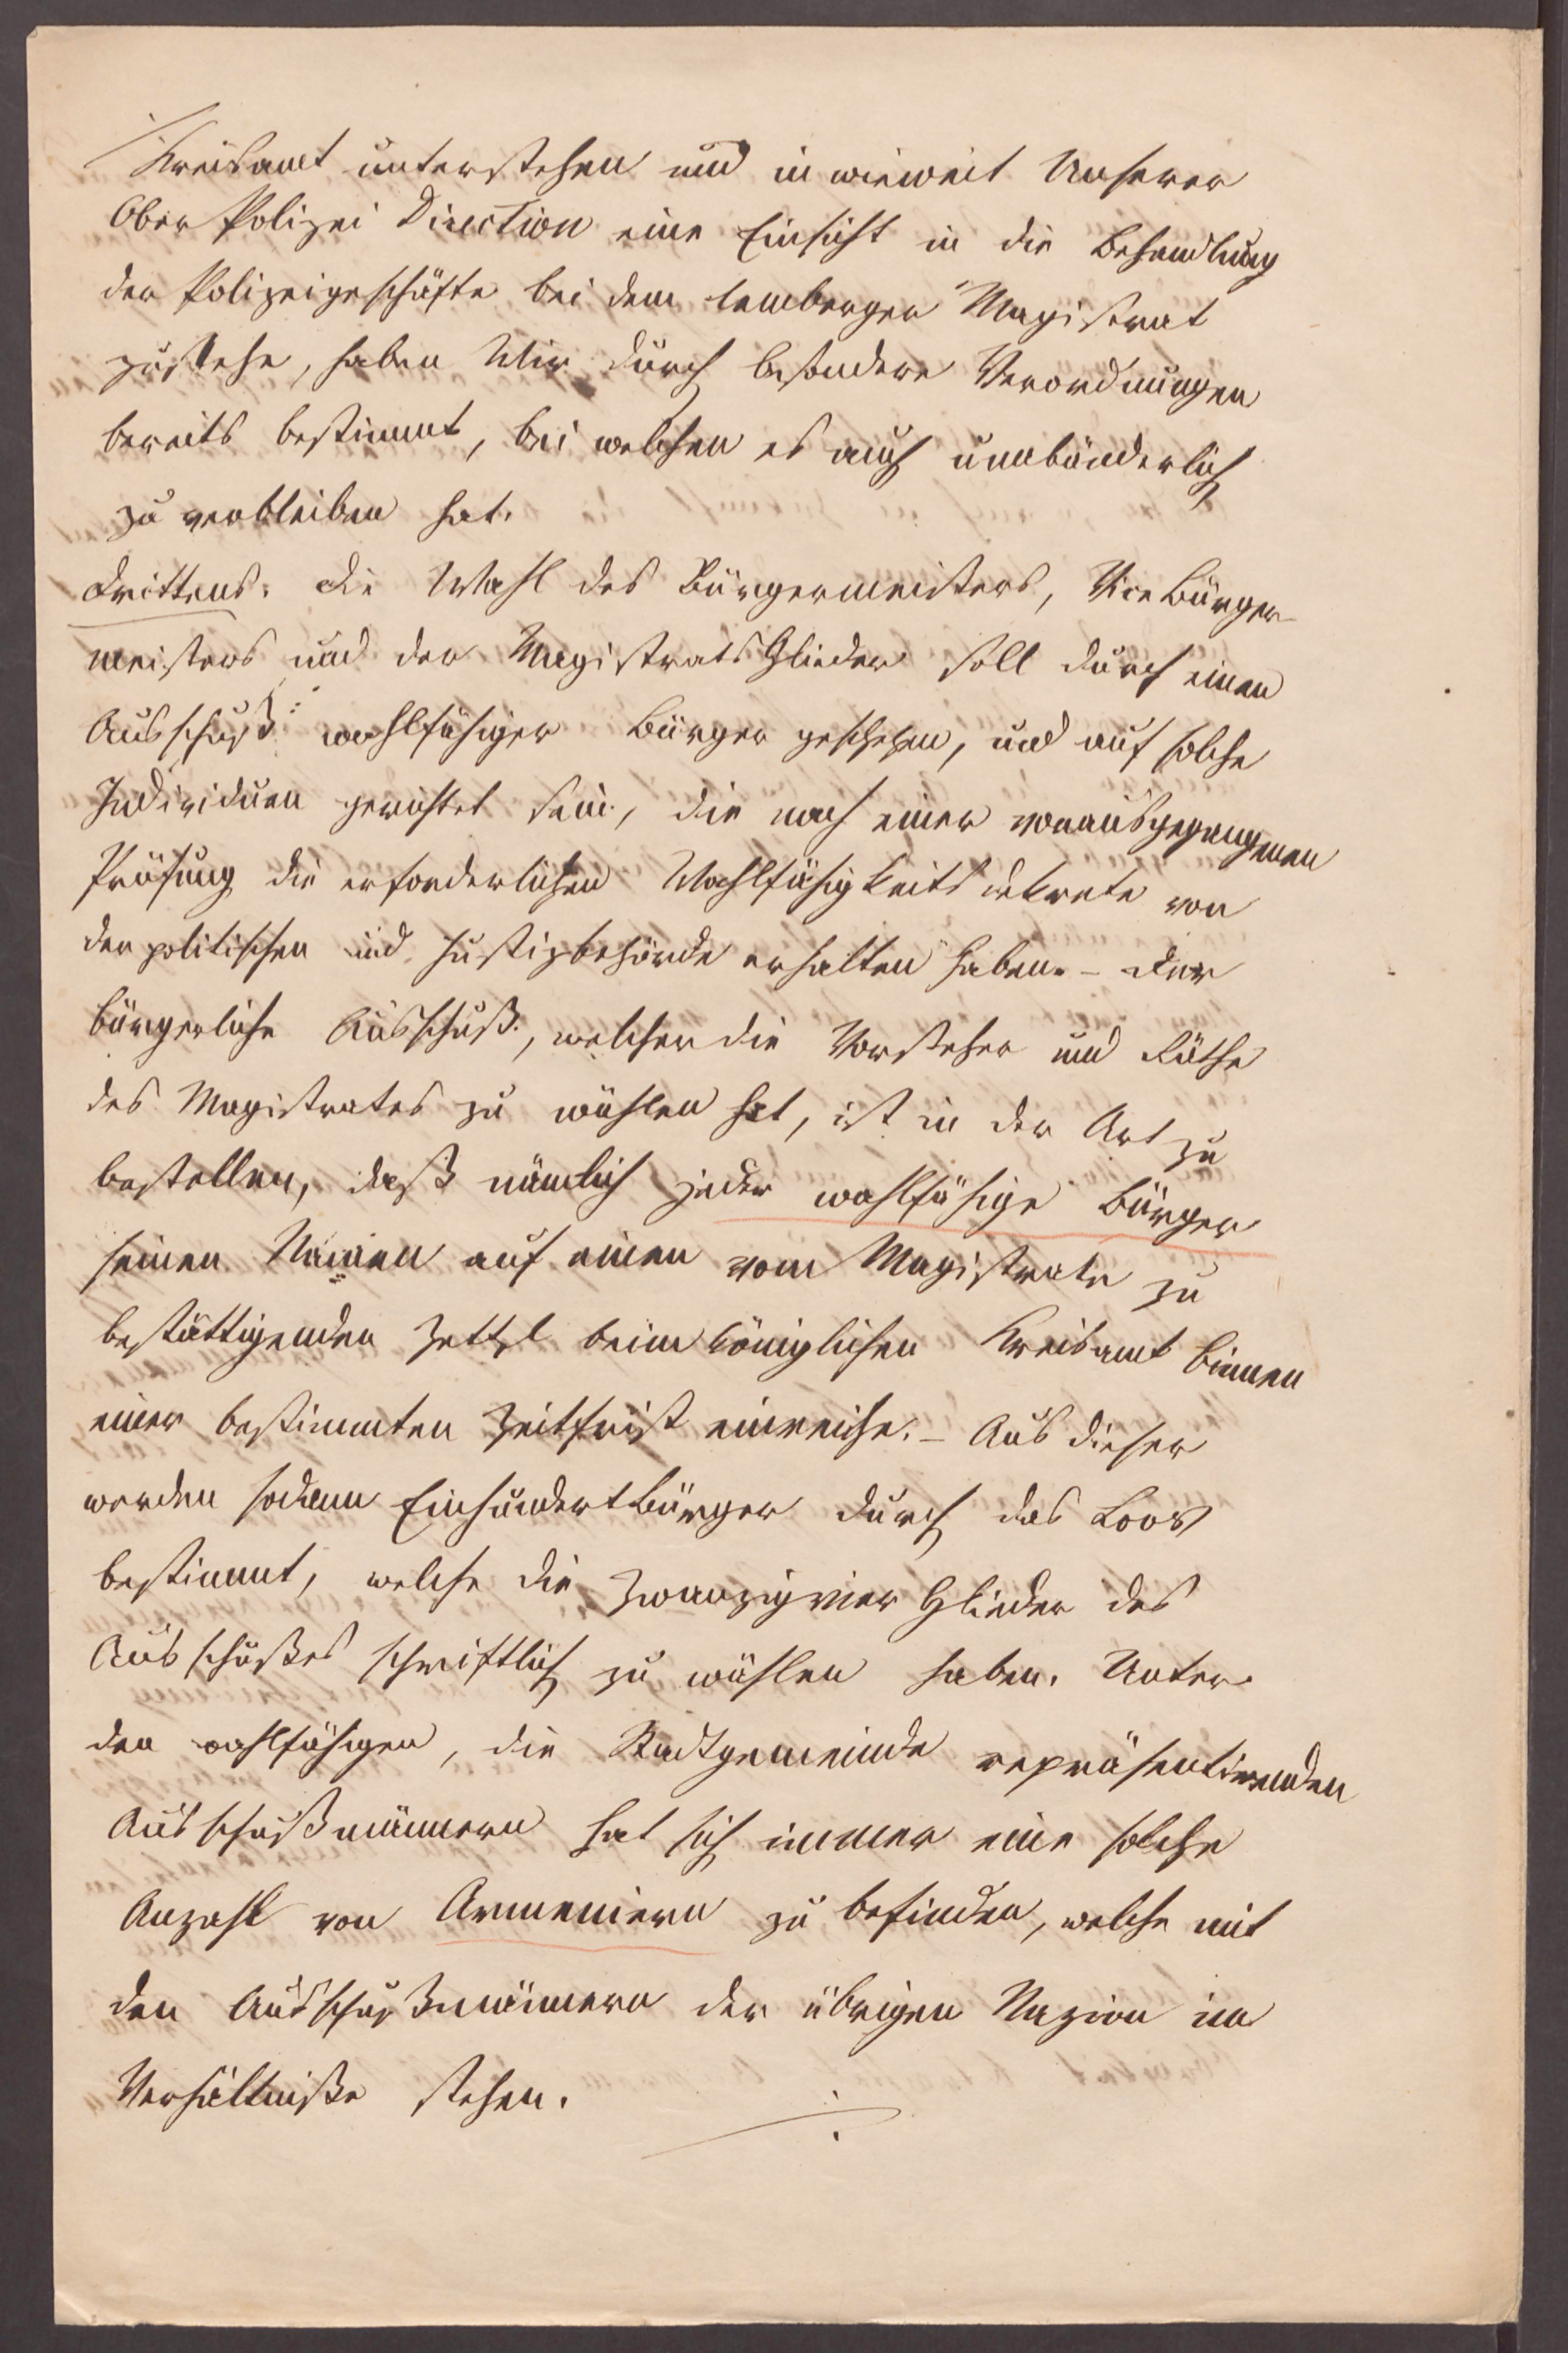 Kreisamt unterstehen und in wieweit Unserer
Ober Polizei Direction eine Einsicht in die Behandlung
der Polizeigeschäfte bei dem lemberger Magistrat
zustehe, haben Wir durch besondere Verordnungen
bereits bestimmt, bei welchen es auch unabänderlich
zu verbleiben hat.
Drittens: Die Wahl des Bürgermeisters, Vice Bürger-
meisters und der Magistrats Glieder soll durch einen
Ausschuß wahlfähiger Bürger geschehen, und auf solche
Individuen gerichtet sein, die nach einer vorausgegangenen
Prüfung die erforderlichen Wahlfähigkeits dekrete von
der politischen und Justizbehörde erhalten haben. – Der
bürgerliche Ausschuß, welcher die Vorsteher und Räthe
des Magistrates zu wählen hat, ist in der Art zu
bestellen, daß nämlich jeder wahlfähige Bürger
seinen Namen auf einen vom Magistrate zu
bestättigenden Zettel beim königlichen Kreisamt binnen
einer bestimmten Zeitfrist einreiche. – Aus dieser
werden sodann Einhundert Bürger durch das Loos
bestimmt, welche die zwanzigvier Glieder des
Ausschußes schriftlich zu wählen haben. Unter
den wahlfähigen, die Stadtgemeinde repräsentirenden
Ausschußmännern hat sich immer eine solche
Anzahl von Armeniern zu befinden, welche mit
den Ausschußmännern der übrigen Nazion im
Verhältniße stehen.